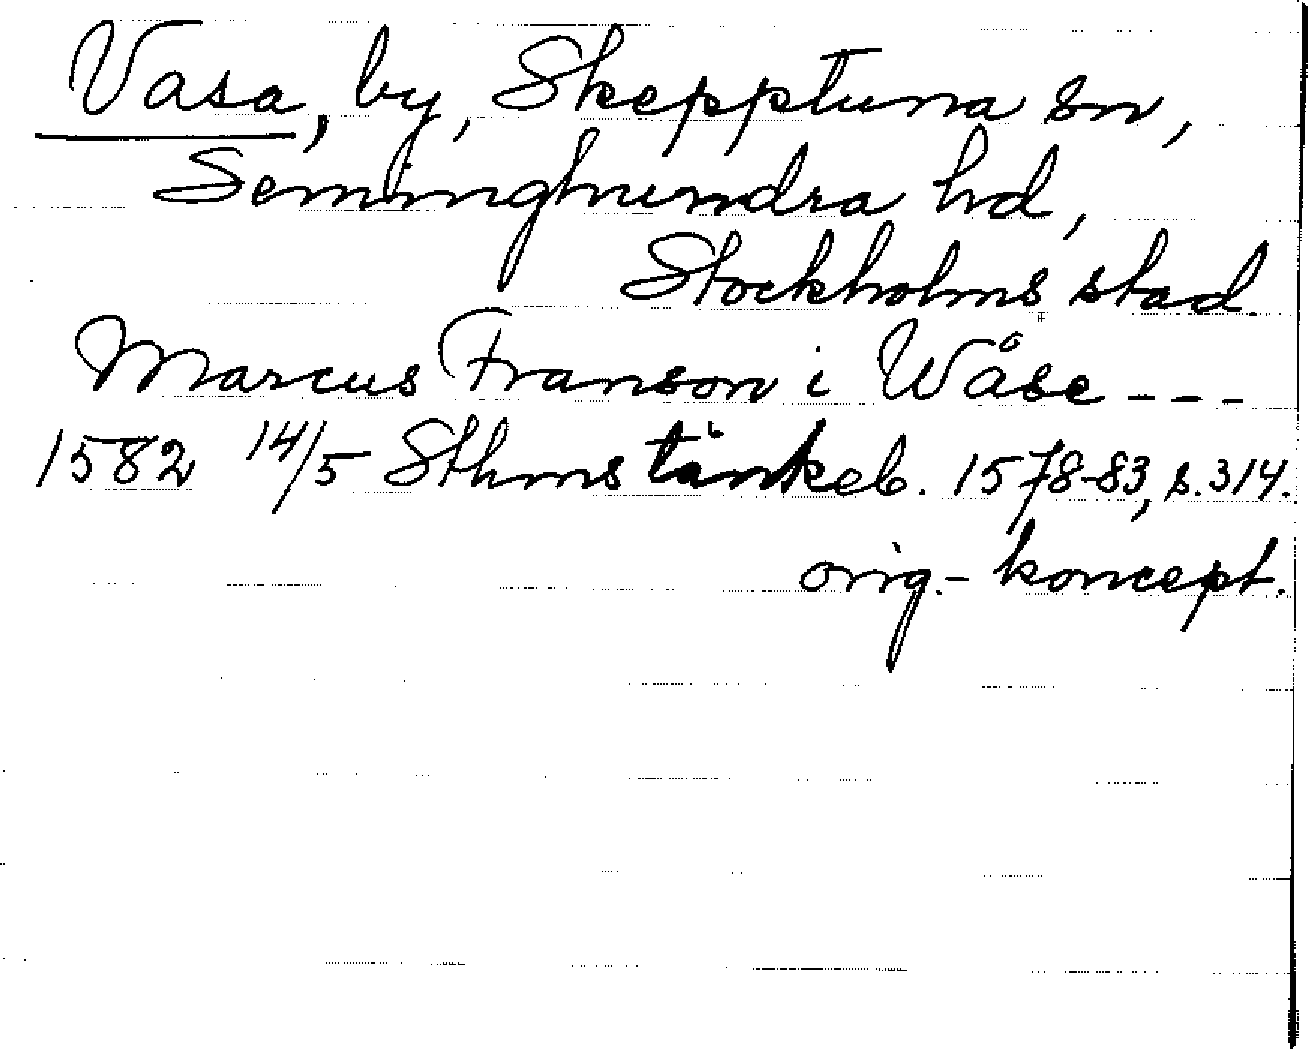 Vasa, by, Skepptuna sn,
Seminghundra hd,
Stockholms stad.
Marcus Franson i Wåse ---
1582 14/5 Sthms tänkeb. 1578-83, s. 314.
orig.- koncept.